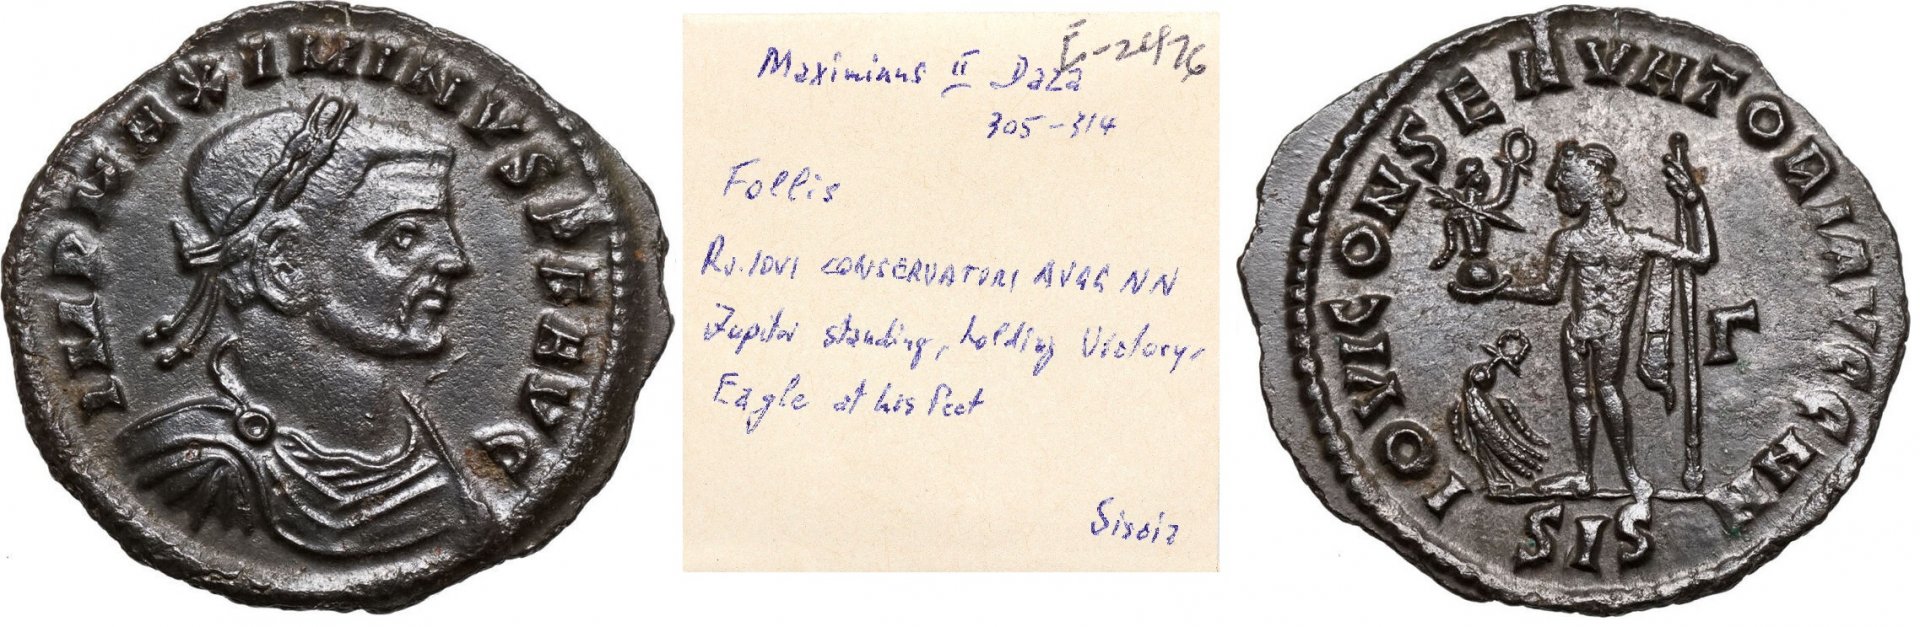 IMP MAXIMINVS P F AVG
Maximinus II Daza
I-2476
305-314
Follis
Rv. IOVI CONSERVATORI AVGG NN
Jupiter standing, holding Victory,
Eagle at his feet
Siscia
IOVI CONSERVATORI AVGG NN
Γ
SIS